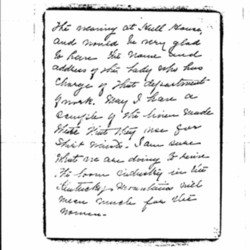 the weaving at Hull House,
and would be very glad
to have the name and
address of the lady who has
charge of that department
of work. May I have a
sample of the linen made
there that they use for
shirt waists. I am sure
what we are doing to revive
the loom industry in the
Kentucky Mountains will
mean much for the
women.